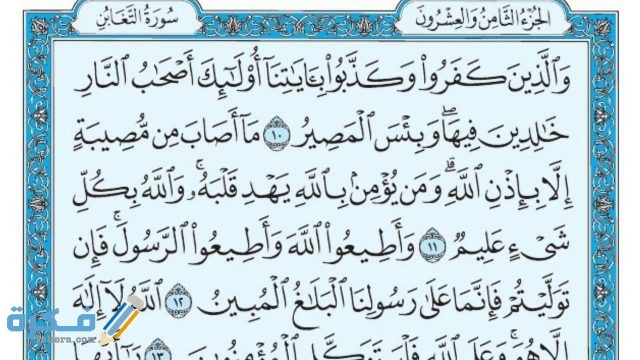 الجُزْءُ الثَّامِنُ وَالعِشْرُونَ
سُورَةُ التَّغَابُنِ
وَالَّذِينَ كَفَرُوا۟ وَكَذَّبُوا۟ بِـَٔايَٰتِنَآ أُو۟لَٰٓئِكَ أَصْحَٰبُ النَّارِ
خَٰلِدِينَ فِيهَا ۖ وَبِئْسَ الْمَصِيرُ ١٠ مَآ أَصَابَ مِن مُّصِيبَةٍ
إِلَّا بِإِذْنِ اللَّهِ ۗ وَمَن يُؤْمِنۢ بِاللَّهِ يَهْدِ قَلْبَهُۥ ۚ وَاللَّهُ بِكُلِّ
شَىْءٍ عَلِيمٌ ١١ وَأَطِيعُوا۟ اللَّهَ وَأَطِيعُوا۟ الرَّسُولَ ۚ فَإِن
تَوَلَّيْتُمْ فَإِنَّمَا عَلَىٰ رَسُولِنَا الْبَلَٰغُ الْمُبِينُ ١٢ اللَّهُ لَآ إِلَٰهَ
إِلَّا هُوَ ۚ وَعَلَى اللَّهِ فَلْيَتَوَكَّلِ الْمُؤْمِنُونَ ١٣ يَٰٓأَيُّهَا
مفكرة